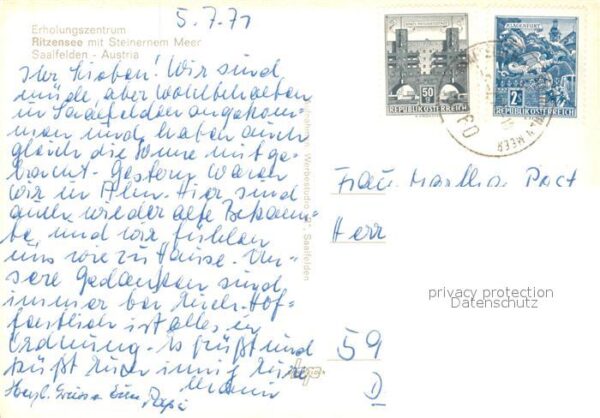 5.7.71
Erholungszentrum
Ritzensee mit Steinernem Meer
Saalfelden - Austria
Ihr Lieben! Wir sind
müde, aber wohlbehalten
in Saalfelden angekom=
men und haben auch
gleich die Sonne mitge=
bracht. Gestern waren
wir in Alm. Hier sind
auch wieder alte Bekann=
te, und wir fühlen
uns wie zu Hause. Un=
sere Gedanken sind
immer bei Euch. Hof=
fentlich ist alles in
Ordnung. Es grüßt und
küßt Euch innig Eure
Herzl. Grüsse Euer Papi
50
REPUBLIK ÖSTERREICH
KLAGENFURT
2
REPUBLIK ÖSTERREICH
MEER
Saalfelden
Frau Martha
Herr
privacy protection
Datenschutz
59
D